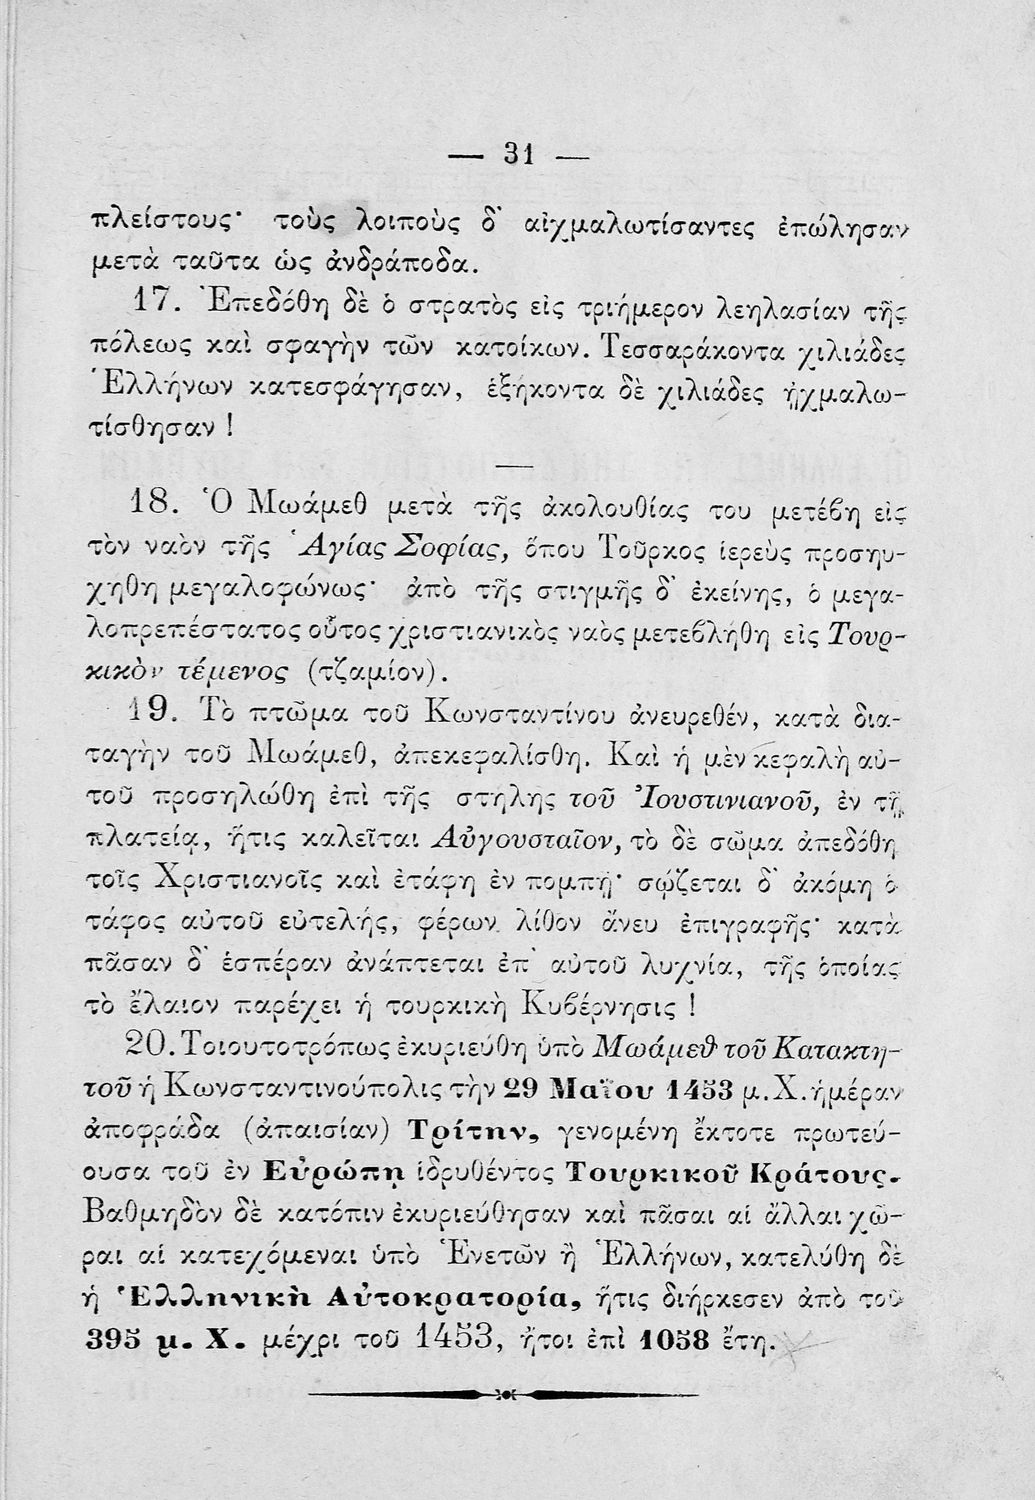 — 31 —
πλείστους· τοὺς λοιποὺς δ᾽ αἰχμαλωτίσαντες ἐπώλησαν
μετὰ ταῦτα ὡς ἀνδράποδα.
17. Ἐπεδόθη δὲ ὁ στρατὸς εἰς τριήμερον λεηλασίαν τῆς
πόλεως καὶ σφαγὴν τῶν κατοίκων. Τεσσαράκοντα χιλιάδες
Ἑλλήνων κατεσφάγησαν, ἑξήκοντα δὲ χιλιάδες ᾐχμαλω-
τίσθησαν !
18. Ὁ Μωάμεθ μετὰ τῆς ἀκολουθίας του μετέβη εἰς
τὸν ναὸν τῆς Ἁγίας Σοφίας, ὅπου Τοῦρκος ἱερεὺς προσηυ-
χηθη μεγαλοφώνως· ἀπὸ τῆς στιγμῆς δ᾽ ἐκείνης, ὁ μεγα-
λοπρεπέστατος οὗτος χριστιανικὸς ναὸς μετεβλήθη εἰς Τουρ-
κικὸν τέμενος (τζαμίον).
19. Τὸ πτῶμα τοῦ Κωνσταντίνου ἀνευρεθέν, κατὰ δια-
ταγὴν τοῦ Μωάμεθ, ἀπεκεφαλίσθη. Καὶ ἡ μὲν κεφαλὴ αὐ-
τοῦ προσηλώθη ἐπὶ τῆς στήλης τοῦ Ἰουστινιανοῦ, ἐν τῇ
πλατείᾳ, ἥτις καλεῖται Αὐγουσταῖον, τὸ δὲ σῶμα ἀπεδόθη
τοῖς Χριστιανοῖς καὶ ἐτάφη ἐν πομπῇ· σῴζεται δ᾽ ἀκόμη ὁ
τάφος αὐτοῦ εὐτελής, φέρων λίθον ἄνευ ἐπιγραφῆς· κατὰ
πᾶσαν δ᾽ ἑσπέραν ἀνάπτεται ἐπ᾽ αὐτοῦ λυχνία, τῆς ὁποίας
τὸ ἔλαιον παρέχει ἡ τουρκικὴ Κυβέρνησις !
20. Τοιουτοτρόπως ἐκυριεύθη ὑπὸ Μωάμεθ τοῦ Κατακτη-
τοῦ ἡ Κωνσταντινούπολις τὴν 29 Μαΐου 1453 μ. Χ. ἡμέραν
ἀποφράδα (ἀπαισίαν) Τρίτην, γενομένη ἔκτοτε πρωτεύ-
ουσα τοῦ ἐν Εὐρώπῃ ἱδρυθέντος Τουρκικοῦ Κράτους.
Βαθμηδὸν δὲ κατόπιν ἐκυριεύθησαν καὶ πᾶσαι αἱ ἄλλαι χῶ-
ραι αἱ κατεχόμεναι ὑπὸ Ἑνετῶν ἢ Ἑλλήνων, κατελύθη δὲ
ἡ Ἑλληνικὴ Αὐτοκρατορία, ἥτις διήρκεσεν ἀπὸ τοῦ
395 μ. Χ. μέχρι τοῦ 1453, ἤτοι ἐπὶ 1058 ἔτη.